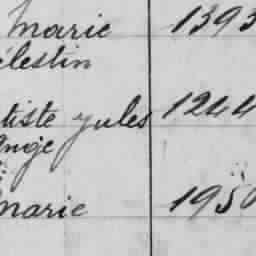 Marie 1393
élestin
tiste Jules 1244
Ange
Marie 1950